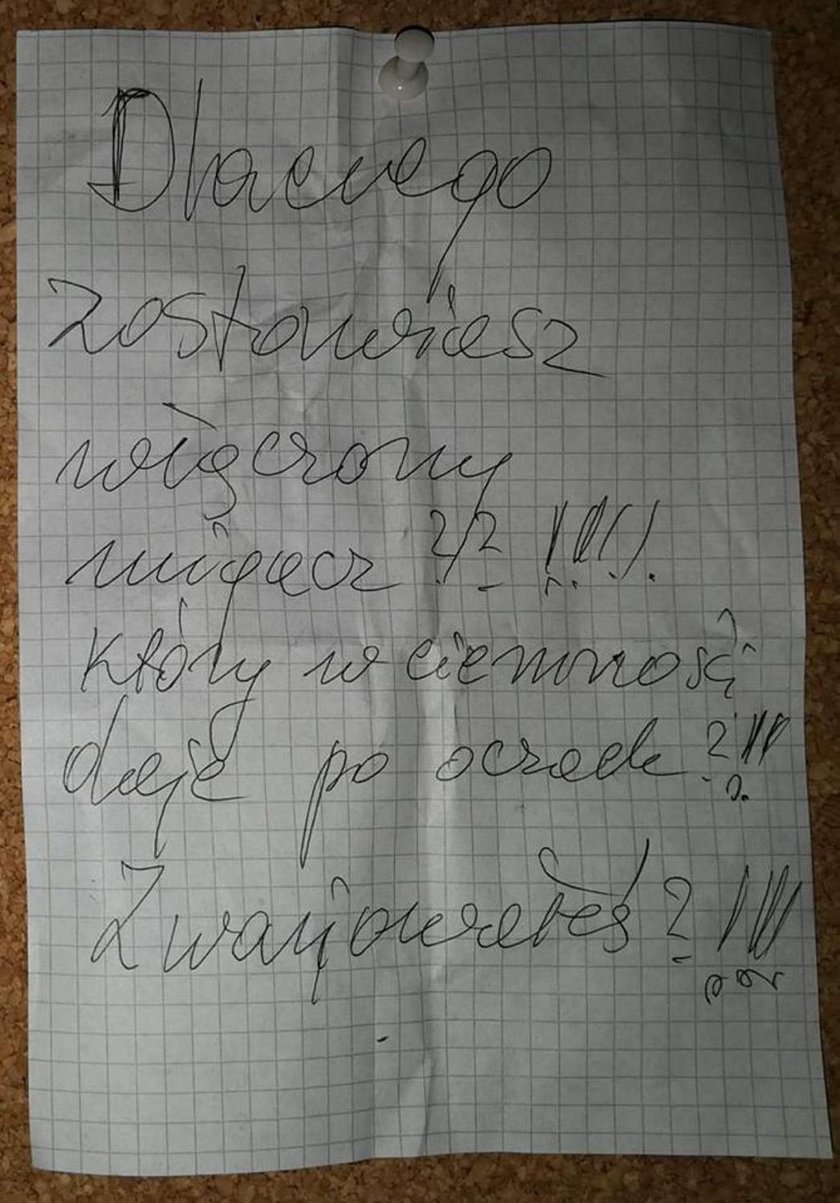 Dlaczego
zostawiasz
włączony
migacz ??? !!!!!
który w ciemnośći
daje po oczach ?!!!
Zwarjowałeś ? !!!!